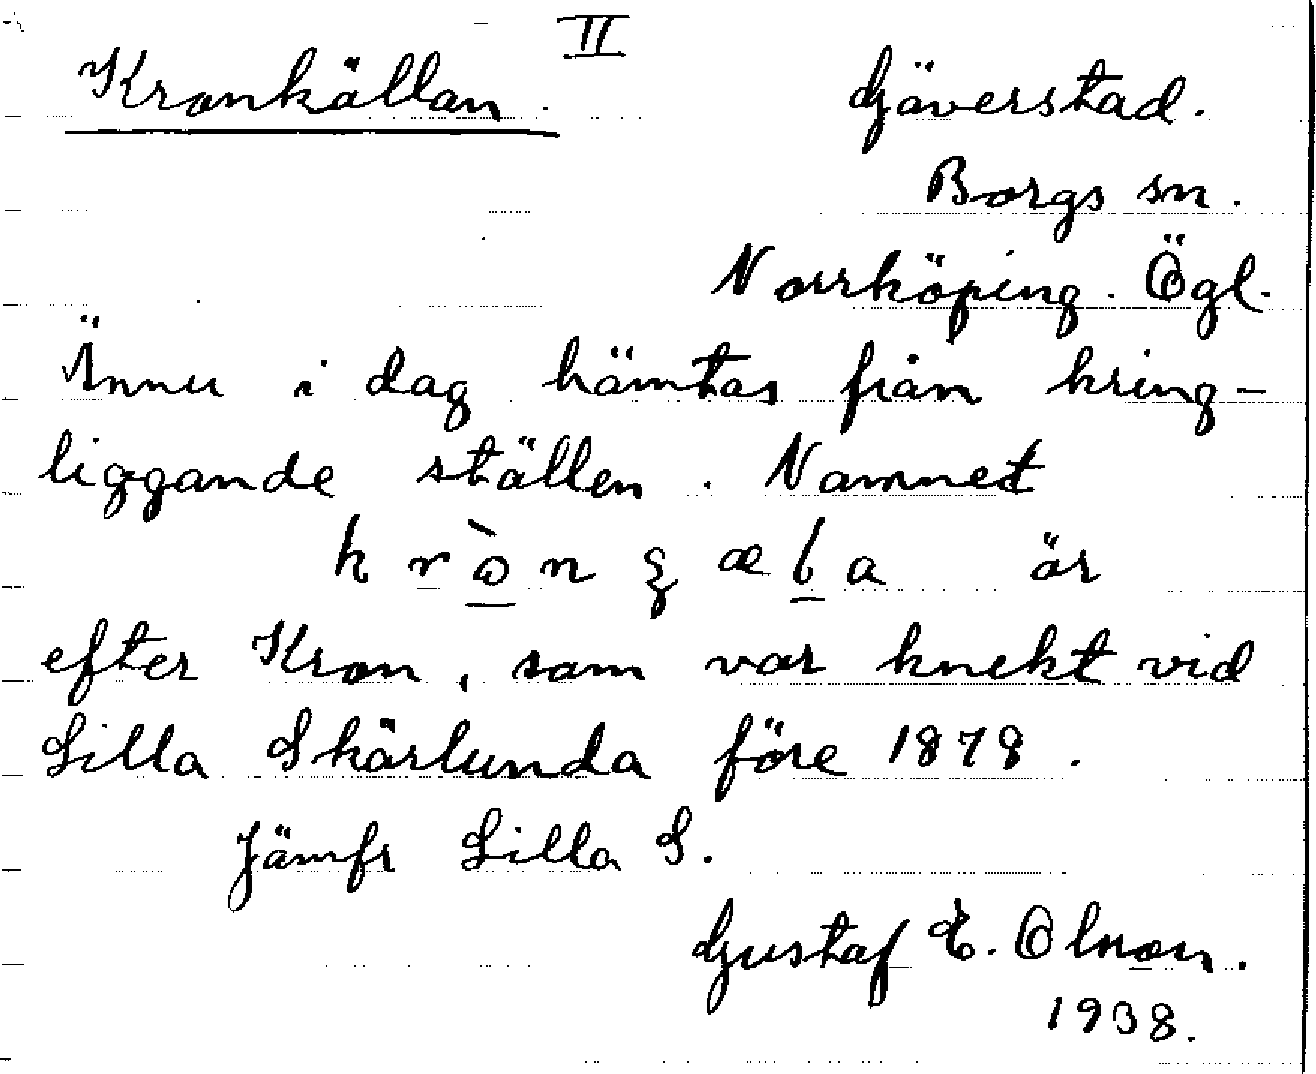 II
Kronkällan. Gäverstad.
Borgs sn.
Norrköping. Ögl.
Ännu i dag hämtas från kring-
liggande ställen. Namnet
är
efter Kron, som var knekt vid
Lilla Skärlunda före 1878.
Jämfr Lilla S.
Gustaf E. Olnon.
1938.